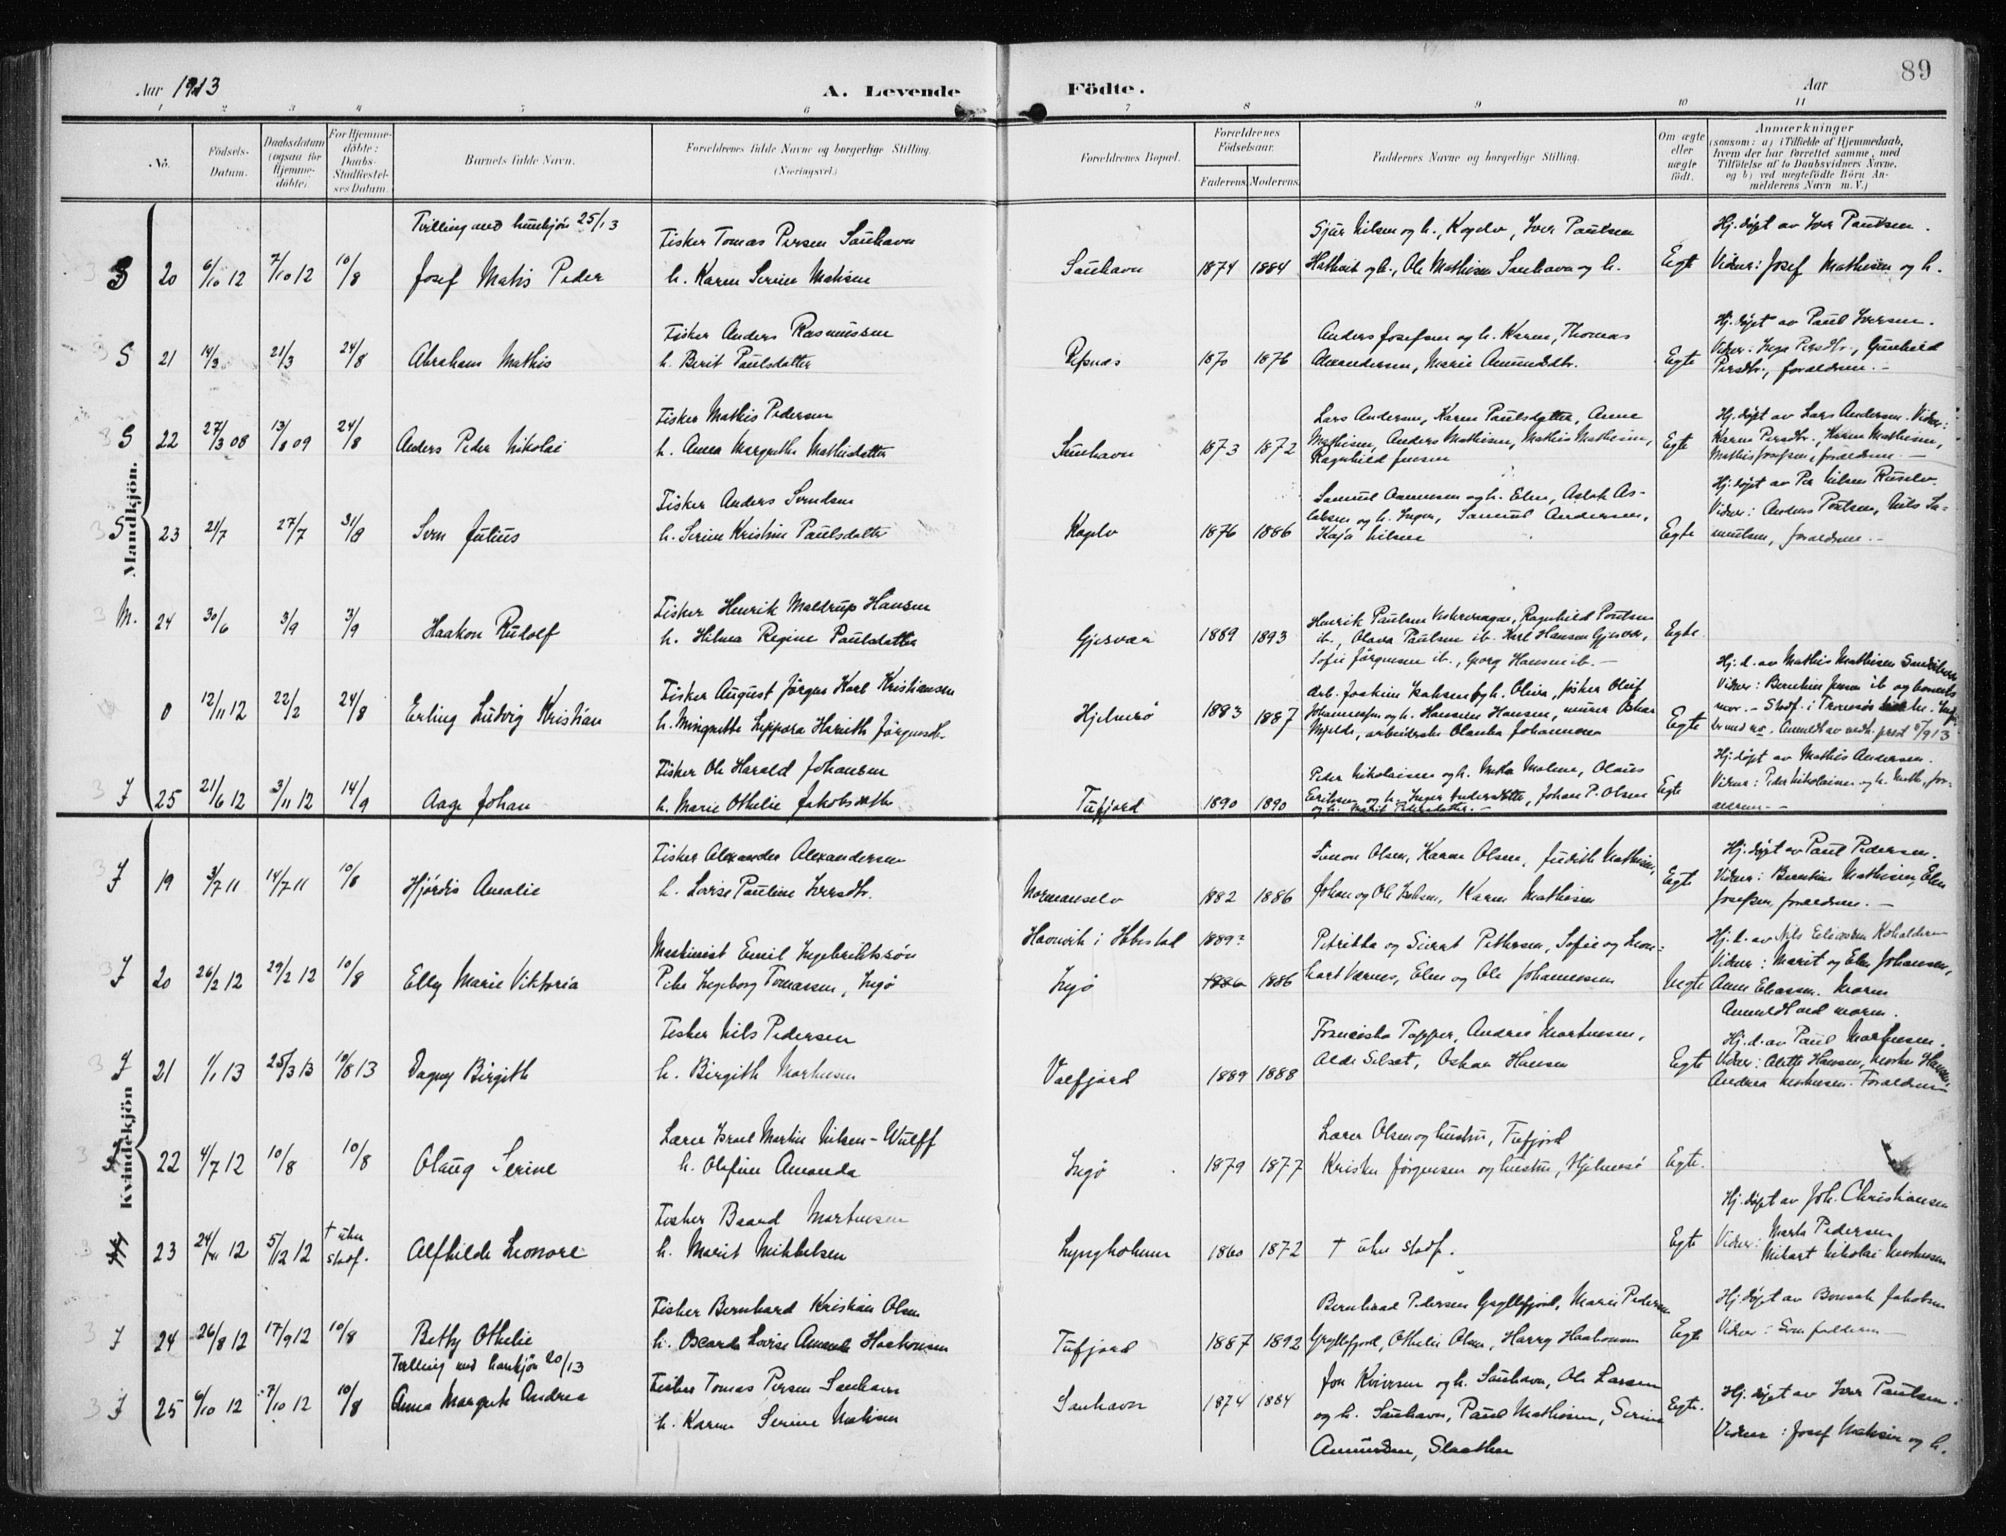 89
Aar 1913 A. Levende Födte. Aar
1 2 3 4 5 6 7 8 9 10 11
No.
Födsels-Datum.
Daabsdatum (ogsaa for Hjemmedöbte)
For Hjemmedöbte: Daabs-Stadfæstelses Datum.
Barnets fulde Navn.
Forældrenes fulde Navne og borgerlige Stilling. (Næringsvei.)
Forældrenes Bopæl.
Forældrenes Födselsaar.
Faderens. Moderens.
Faddernes Navne og borgerlige Stilling.
Om ægte eller uægte födt.
Anmærkninger
(saasom: a) i Tilfælde af Hjemmedaab, hvem der har forrettet samme, med Tilföielse af to Daabsvidners Navne, og b) ved uægtefödte Börn Anmelderens Navn m. V.)
Mandkjön.
Tvilling med kvinkjön 25/13
S 20 6/10 12 7/10 12 10/8 Josef Matis Peder
Fisker Tomas Persen Sauhavn
h. Karen Serine Matisen
Sauhavn 1874 1884
Sjur Nilsen og h., Iver Paulsen
og h., Ole Mathisen Sauhavn og h.
Egte
Hj. døpt av Iver Paulsen.
Vidner: Josef Mathisen og h.
S 21 14/3 21/3 24/8 Abraham Mathis
Fisker Anders Rasmussen
h. Berit Paulsdatter
Refsnes 1870 1876
Anders Josefsen og h. Karen, Thomas
Amandersen, Marie Amundsdtr.
Egte
Hj. døpt av Paul Iversen.
Vidner: Inga Persdtr., Gunhild
Persdtr., forældrene.
S 22 27/3 08 13/8 09 24/8 Anders Peder Nikolai
Fisker Mathis Pedersen
h. Anna Margrethe Mathisdatter
Sauhavn 1873 1872
Lars Andersen, Karen Paulsdatter, Anne
Mathisen, Anders Mathisen, Mathis Mathisen,
Ragnhild Jensen
Egte
Hj. døpt av Lars Andersen. Vidner:
Karen Persdtr., Karen Mathisen,
Mathis Josefsen, forældrene.
S 23 21/7 27/7 31/8 Sven Julius
Fisker Anders Svendsen
h. Serine Kristine Paulsdatter
1876 1886
Samuel Aanesen og h. Elen, Aslak As-
laksen og h. Inger, Samuel Andersen,
Kaja Nilsen
Egte
Hj. døpt av Per Nilsen
Vidner: Anders Poulsen, Nils Sa-
muelsen, forældrene.
M. 24 30/6 3/9 3/9 Haakon Rudolf
Fisker Henrik Meldrup Hansen
h. Hilma Regine Paulsdatter
Gjesvær 1889 1893
Henrik Paulsen Ragnhild Poulsen
ib., Olava Paulsen ib. Karl Hansen Gjesvær,
Sofie Jørgensen ib., Georg Hansen ib.
Egte
0 12/11 12 22/2 24/8 Erling Ludvig Kristian
Fisker August Jørgen Karl Kristiansen
h. Seppora Harieth Jørgensdtr.
Hjelmsø 1883 1887
Arb. Joakim Isaksen og h. Oliva, fisker Oluf
Johannessen og h. Hansine Hansen, murer Oskar
Mjelde, arbeiderske Olanka Johannesen
Egte
Hj. d. av Mathis Mathisen
Vidner: Berntine Jensen ib og barnets
mor. Stadf. i Tromsø
Anmeldt av vedk. prest 5/9 13
J 25 21/6 12 3/11 12 14/9 Aage Johan
Fisker Ole Harald Johansen
h. Marie Othelie Jakobsdatter
Tufjord 1890 1890
Peder Nikolaisen og h. Metha Malene, Olaus
Eriksen og h. Inger Andersdatter, Johan P. Olsen
og h. Marit Pedersdatter.
Egte
Hj. døpt av Mathis Andersen.
Vidner: Peder Nikolaisen og h. Meth., for-
ældrene.
Kvindekjön
J 19 3/7 11 14/7 11 10/8 Hjørdis Amalie
Fisker Alexander Alexandersen
h. Lovise Pauline Iversdtr.
Normanselv 1882 1886
Simon Olsen, Karen Olsen, Judith Mathisen,
Johan og Ole Isaksen, Karen Mathisen
Egte
Hj. døpt av Paul Pedersen.
Vidner: Berntine Mathisen, Elen
Josefsen, forældrene.
J 20 26/2 12 29/2 12 10/8 Elly Marie Viktoria
Maskinist Emil Ingebriktsøn
Pike Ingeborg Tomassen, Ingø
Havnvik i Ibbestad 1889?
Ingø 1886 1886
Petrikka og Sivert Pettersen, Sofie og Leon-
hart Varnes, Elen og Ole Johannessen
Uegte
Hj. d. av Nils Eliassen
Vidner: Marit og Elen Johansen,
Anne Eliassen. Moren
Anmeldt ved moren.
J 21 1/1 13 25/3 13 10/8 13 Dagny Birgith
Fisker Nils Pedersen
h. Birgith Mortensen
Valfjord 1889 1888
Franciska Topper, Andrea Mortensen,
Alde Selsæt, Oskar Hansen
Egte
Hj. d. av Paul Mortensen.
Vidner: Alette Hansen, Hansen,
Andrea Mortensen. Forældrene
22 4/7 12 10/8 10/8 Olaug Serine
Lærer Israel Martin Nilsen-Wulff
h. Olefine Amanda
Ingø 1879 1877
Lærer Olsen og hustru, Tufjord
Kristen Jørgensen og hustru, Hjelmsø
Egte.
23 24/11 12 5/12 12 † uten stadf. Alfhilde Leonore
Fisker Baard Mortensen
h. Marit Mikkelsen
Lyngholmen 1860 1872
† uten stadf.
Egte
Hj. døpt av Joh. Christiansen
Vidner: Marta Pedersen
Mikart Nikolai Mortensen
J 24 26/8 12 17/9 12 10/8 Betsy Othelie
Fisker Bernhard Kristian Olsen
h. Oscarda Lovise Amanda Haakonsen
Tufjord 1887 1892
Bernhard Pedersen Gryllefjord, Marie Pedersen
Gryllefjord, Othelie Olsen, Harry Haakonsen
Egte
Hj. døpt av Jakobsen
Vidner: Som fadderne
Tvilling med hankjøn 20/13
J 25 6/10 12 7/10 12 10/8 Anna Margrete Andrea
Fisker Tomas Persen Sauhavn
h. Karen Serine Matisen
Sauhavn 1874 1884
Jon Kviven og h. Sauhavn, Ole Larsen
og h. Sauhavn, Paul Mathisen, Serine
Amundsen, Slaatten
Egte.
Hj. døpt av Iver Paulsen.
Vidner: Josef Mathisen og h.